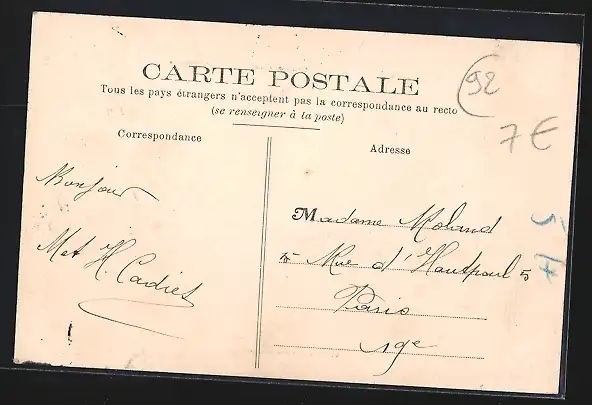 CARTE POSTALE
Tous les pays étrangers n'acceptent pas la correspondance au recto
(se renseigner à la poste)
Correspondance
Bonjour
Met H. Cadiet
Adresse
Madame Moland
5 Rue d'Hautpoul 5
Paris
19e
92
7€